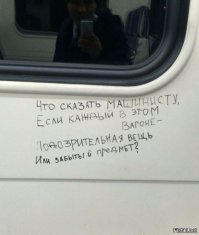 Что сказать машинисту,
Если каждый в этом
вагоне -
Подозрительная вещь
Или забытый предмет?